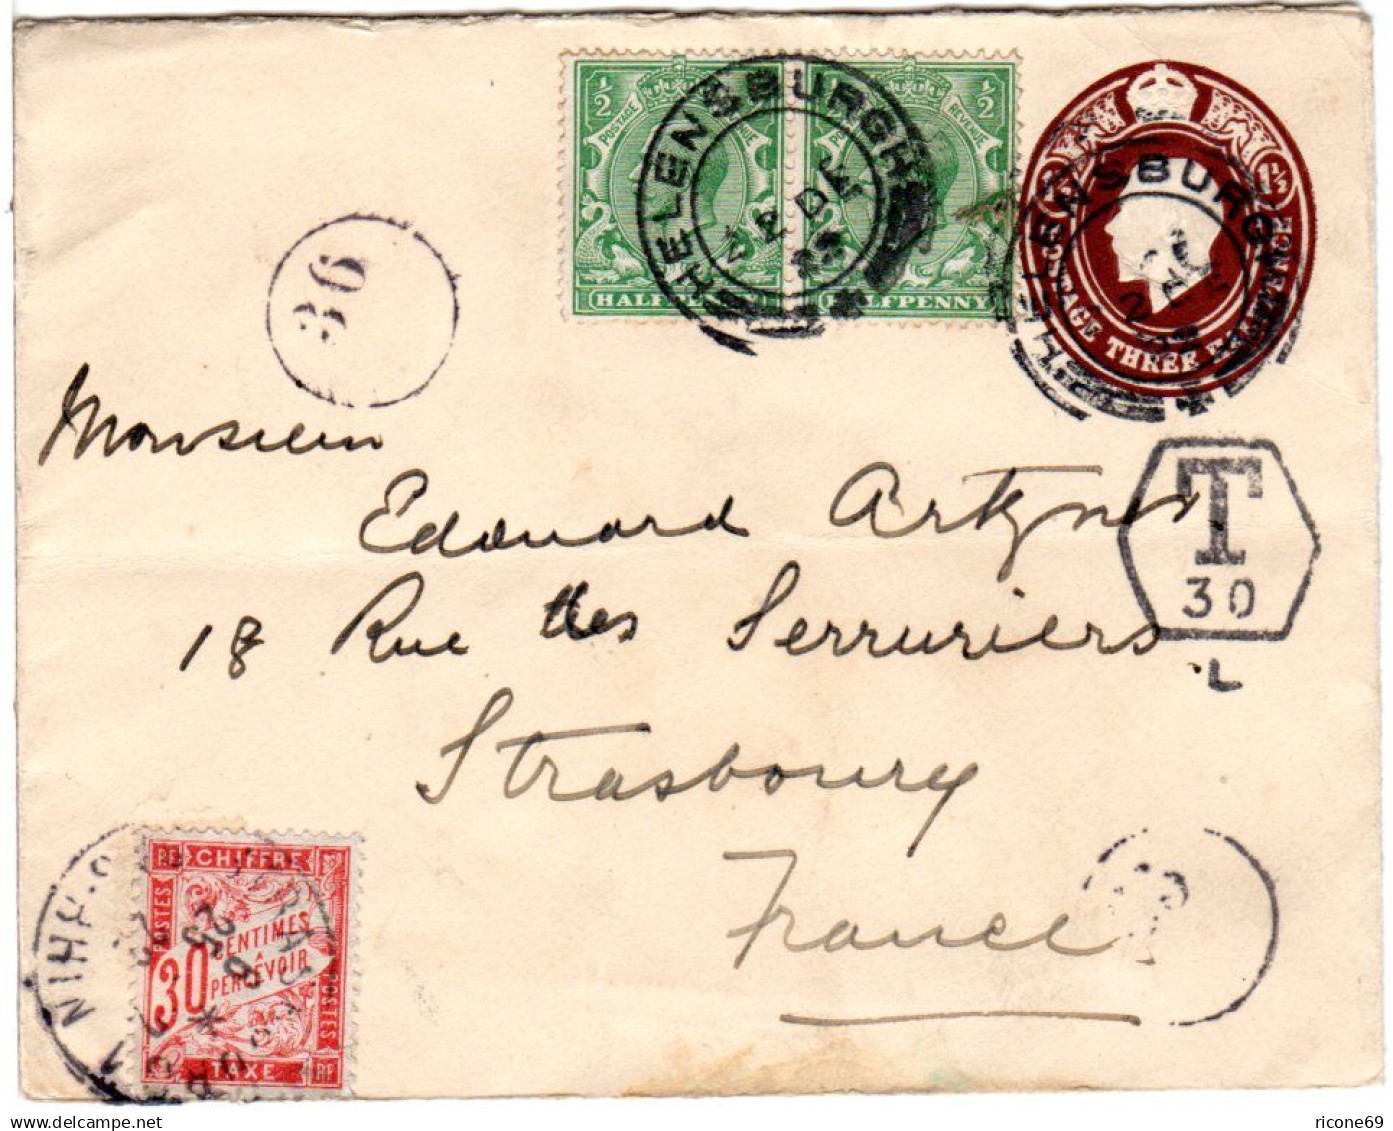 ½ POSTAGE REVENUE ½
HALFPENNY
½ REVENUE ½
HALFPENNY
HELENSBURGH
HELENSBURGH
POSTAGE THREE HALFPENCE
36
Monsieur
Edouard Artzner
18 Rue des Serruriers
Strasbourg
France
T
30
L
RF CHIFFRE RF
POSTES
30 CENTIMES
À
PERCEVOIR
POSTES
TAXE RF
ricone69